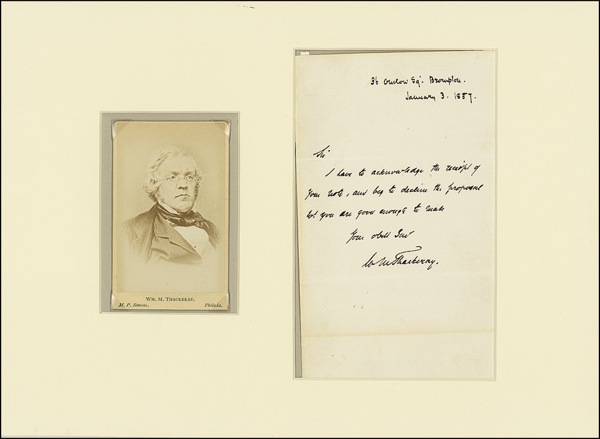 WM. M. THACKERAY.
M. P. SIMONS, Philada.
36 Onslow Sqr. Brompton.
January 3. 1857.
Sir
I have to acknowledge the receipt of
your note, and beg to decline the proposal
wh. you are good enough to make
Your obdt Servt
W M Thackeray.